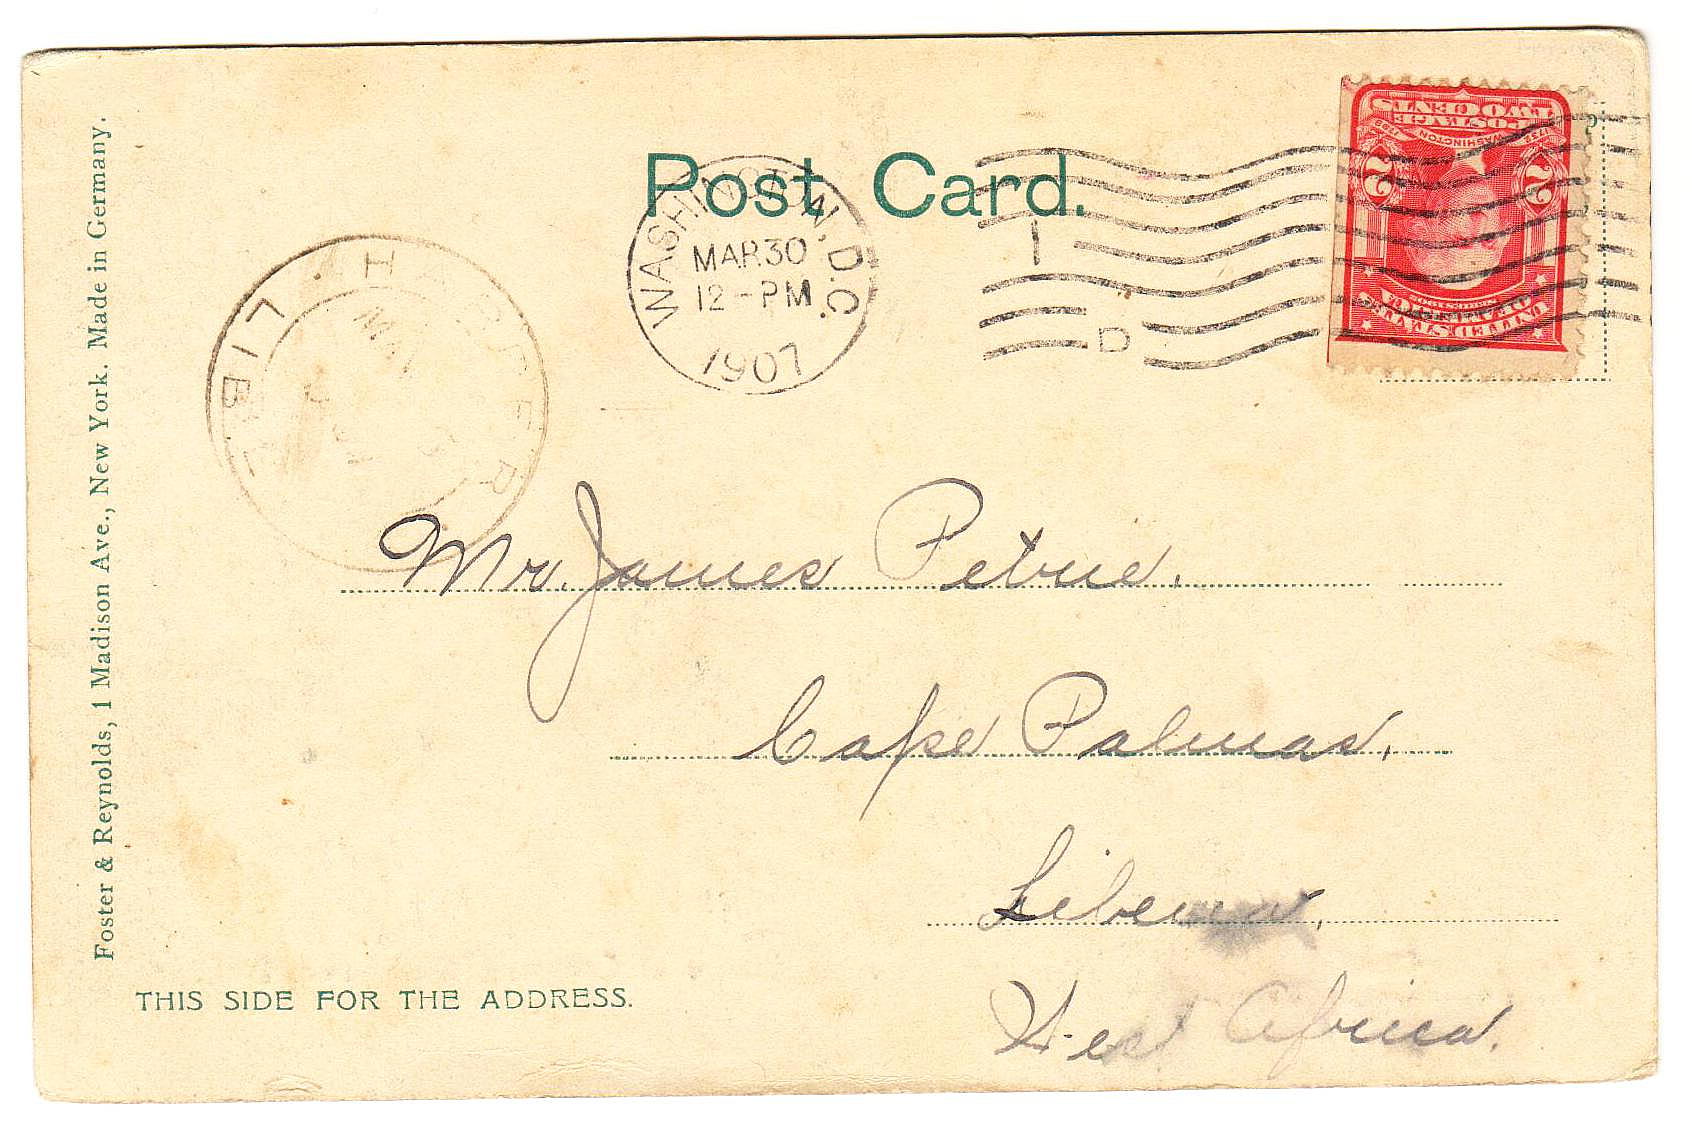 Post Card.
WASHINGTON, D.C.
MAR 30
12-PM
1907
1
D
UNITED STATES OF AMERICA
SERIES 1902
2 2
1732 WASHINGTON 1799
POSTAGE
TWO CENTS
HARPER
LIB
MAY
Mr. James Petrie.
Cape Palmas.
Liberia,
West Africa.
THIS SIDE FOR THE ADDRESS.
Foster & Reynolds, 1 Madison Ave., New York. Made in Germany.